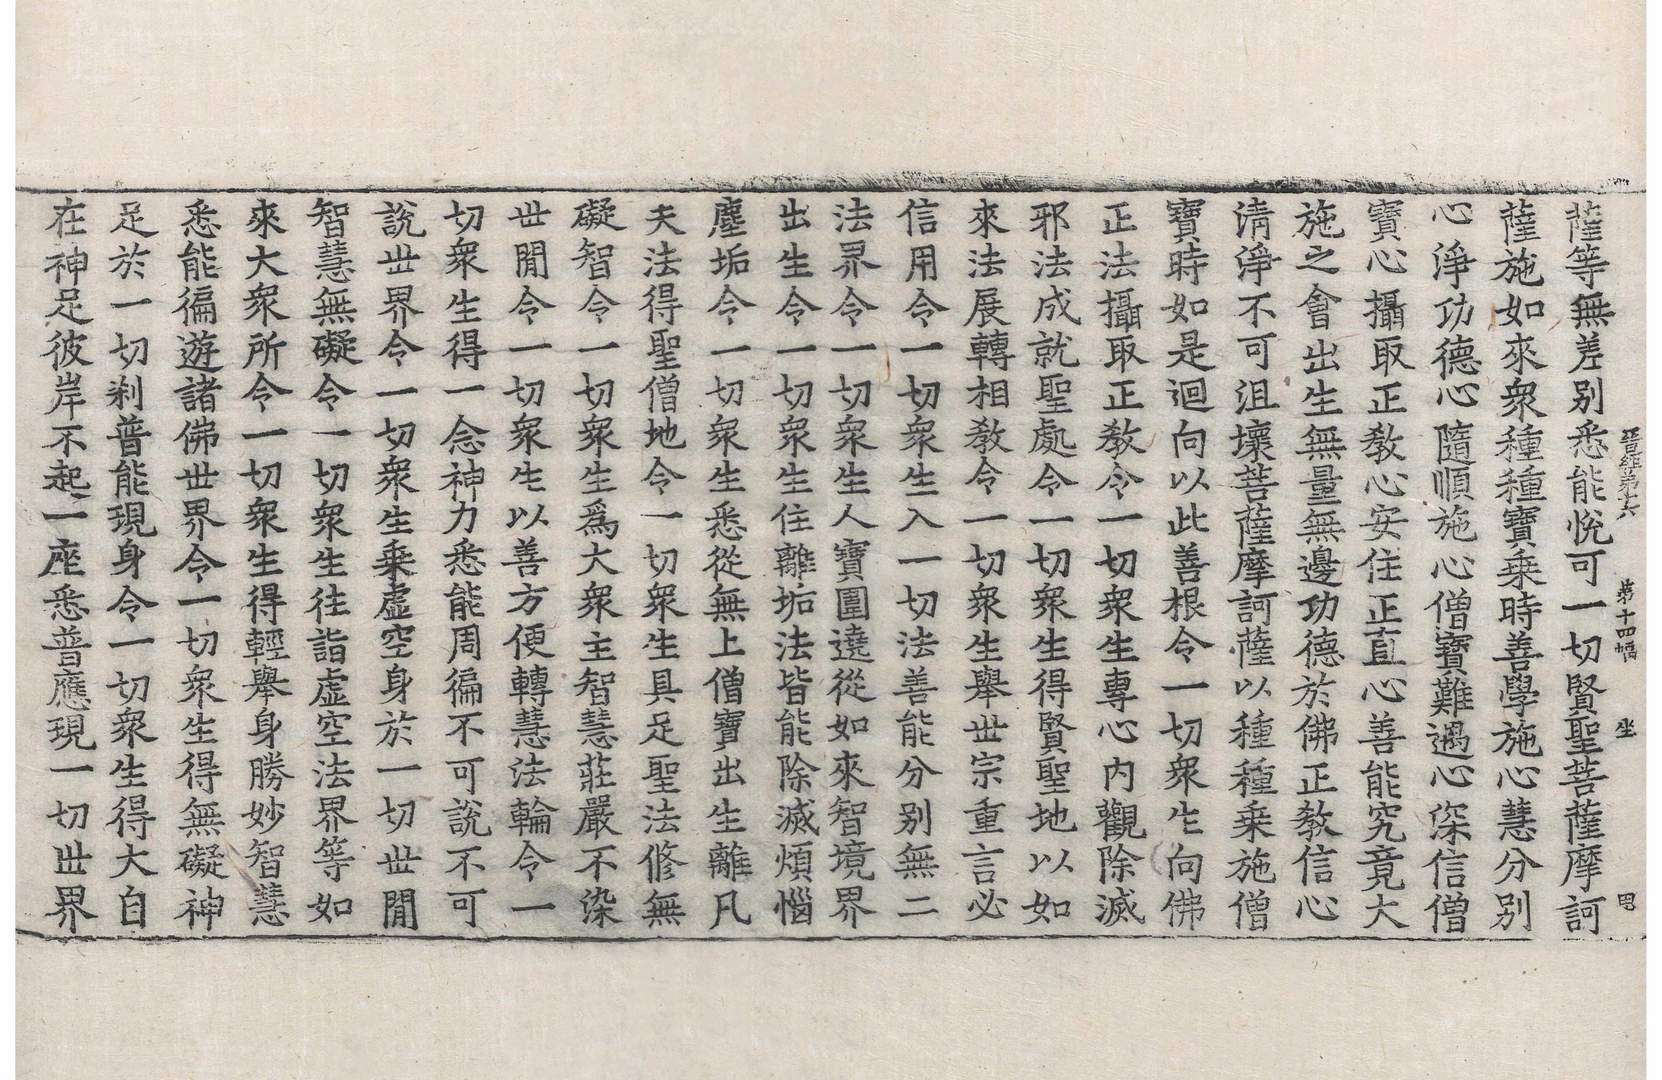 晉經第十六 第十四幅 坐 四
薩等無差別悉能悅可一切賢聖菩薩摩訶
薩施如來衆種種寶乗時善學施心慧分別
心淨功德心隨順施心僧寶難遇心深信僧
寶心攝取正教心安住正直心善能究竟大
施之會出生無量無邊功德於佛正教信心
清淨不可沮壞菩薩摩訶薩以種種乗施僧
寶時如是迴向以此善根令一切衆生向佛
正法攝取正教令一切衆生專心內觀除滅
邪法成就聖處令一切衆生得賢聖地以如
來法展轉相教令一切衆生舉世宗重言必
信用令一切衆生入一切法善能分別無二
法界令一切衆生人寶圍遶從如來智境界
出生令一切衆生住離垢法皆能除滅煩惱
塵垢令一切衆生悉從無上僧寶出生離凡
夫法得聖僧地令一切衆生具足聖法修無
礙智令一切衆生爲大衆主智慧莊嚴不染
世閒令一切衆生以善方便轉慧法輪令一
切衆生得一念神力悉能周徧不可說不可
說世界令一切衆生乗虛空身於一切世閒
智慧無礙令一切衆生往詣虛空法界等如
來大衆所令一切衆生得輕舉身勝妙智慧
悉能徧遊諸佛世界令一切衆生得無礙神
足於一切刹普能現身令一切衆生得大自
在神足彼岸不起一座悉普應現一切世界